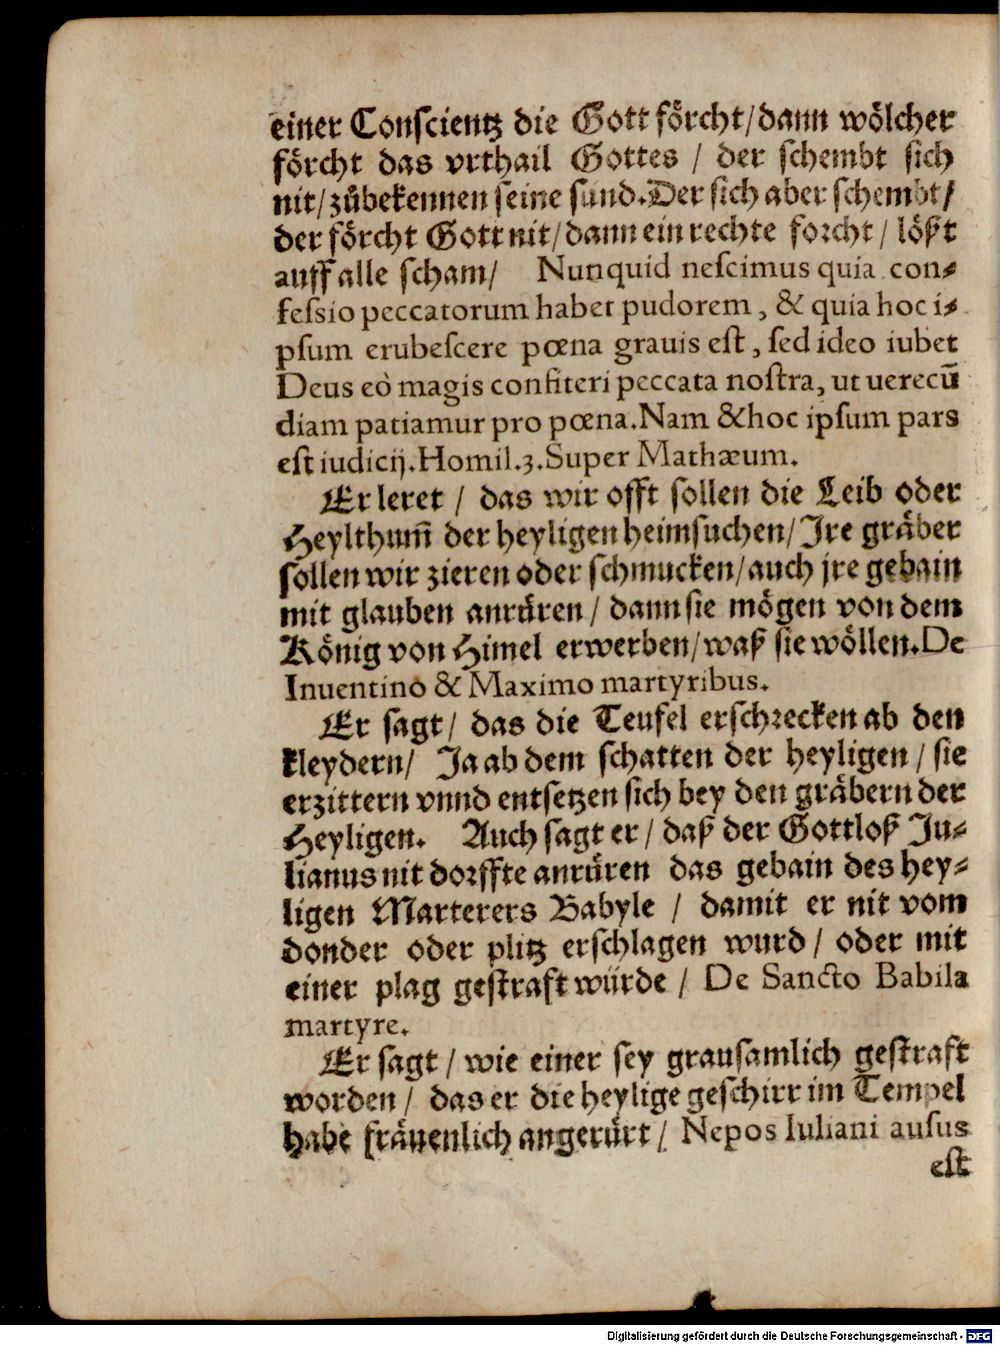 einer Conscientz die Gott förcht/dann wölcher
förcht das vrthail Gottes / der schembt sich
nit/zůbekennen seine sünd.Der sich aber schembt/
der förcht Gott nit/dann ein rechte forcht / lößt
auff alle scham/ Nunquid nescimus quia con⸗
fessio peccatorum habet pudorem, & quia hoc i⸗
psum erubescere pœna grauis est, sed ideo iubet
Deus eò magis confiteri peccata nostra, ut uerecū
diam patiamur pro pœna.Nam & hoc ipsum pars
est iudicij.Homil.3.Super Mathæum.
Er leret / das wir offt sollen die Leib oder
Heylthum̃ der heyligen heimsuchen/Ire gräber
sollen wir zieren oder schmucken/auch jre gebain
mit glauben anrüren / dann sie mögen von dem
König von Himel erwerben/waß sie wöllen.De
Inuentino & Maximo martyribus.
Er sagt/ das die Teufel erschrecken ab den
kleydern/ Ja ab dem schatten der heyligen / sie
erzittern vnnd entsetzen sich bey den gräbern der
Heyligen. Auch sagt er / daß der Gottloß Ju⸗
lianus nit dorffte anrüren das gebain des hey⸗
ligen Marterers Babyle / damit er nit vom
donder oder plitz erschlagen wurd / oder mit
einer plag gestraft würde / De Sancto Babila
martyre.
Er sagt / wie einer sey grausamlich gestraft
worden / das er die heylige geschirr im Tempel
habe fräuenlich angerürt / Nepos Iuliani ausus
est
Digitalisierung gefördert durch die Deutsche Forschungsgemeinschaft - DFG